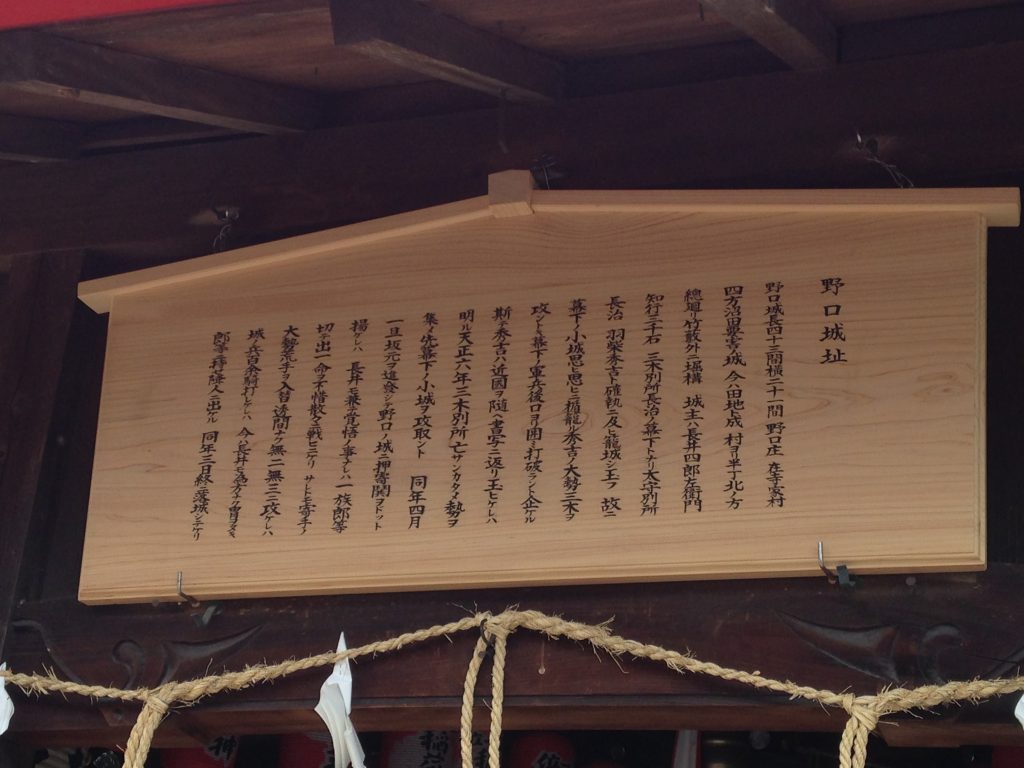 野口城址
野口城長四十三間横二十一間 野口庄 在寺家村
四方ノ沼田要害ノ城 今ハ田地ト成 村ヨリ半丁北ノ方
總廻リ竹藪外ニ堀構 城主ハ長井四郎左衛門
知行三千石 三木別所長治ノ幕下ナリ太守別所
長治 羽柴秀吉ト確執ニ及ヒ籠城シ玉フ 故ニ
幕下ノ小城思ヒ思ヒニ楯籠ル秀吉ノ大勢三木ヲ
攻ント幕下ノ軍兵後口ヨリ囲ミ打破ラント企ケル
斯テ秀吉ハ近國ヲ随ヘ書写ニ返リ玉ヒケレハ
明ル天正六年三木別所亡サンカタメ勢ヲ
集メ先幕下ノ小城ヲ攻取ント 同年四月
一旦坂元ヲ進發シ野口ノ城ニ押寄鬨ヲドット
揚ケレハ 長井モ兼テ覚悟ノ事ナレハ 一族郎等
切テ出一命ヲ不惜散々戦ヒニケリ サレトモ寄手ノ
大勢荒手ヲ入替透間ナク無二無三ニ攻ケレハ
城ノ兵百余騎打レケレハ 今ハ長井モ為方ナク冑ヲヌキ
郎等ニ降人ニ出ル 同年三日終ニ落城シニケリ
神
稲荷